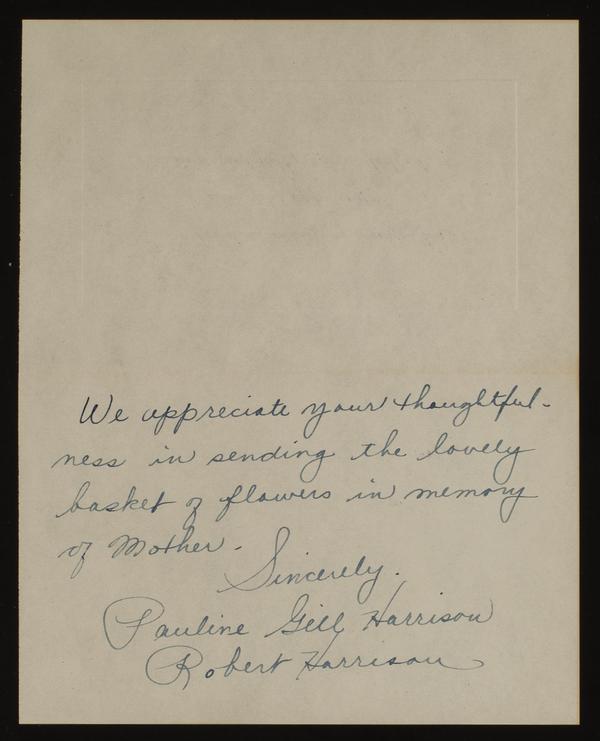 We appreciate your thoughtful-
ness in sending the lovely
basket of flowers in memory
of Mother.
Sincerely.
Pauline Gill Harrison
Robert Harrison